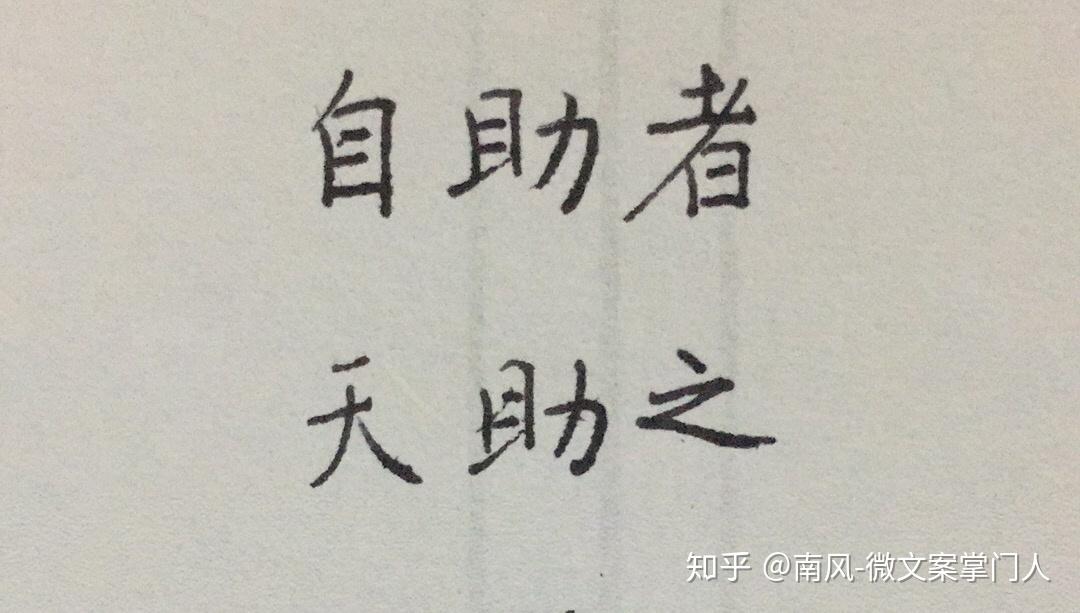 自助者
天助之
知乎 @南风-微文案掌门人